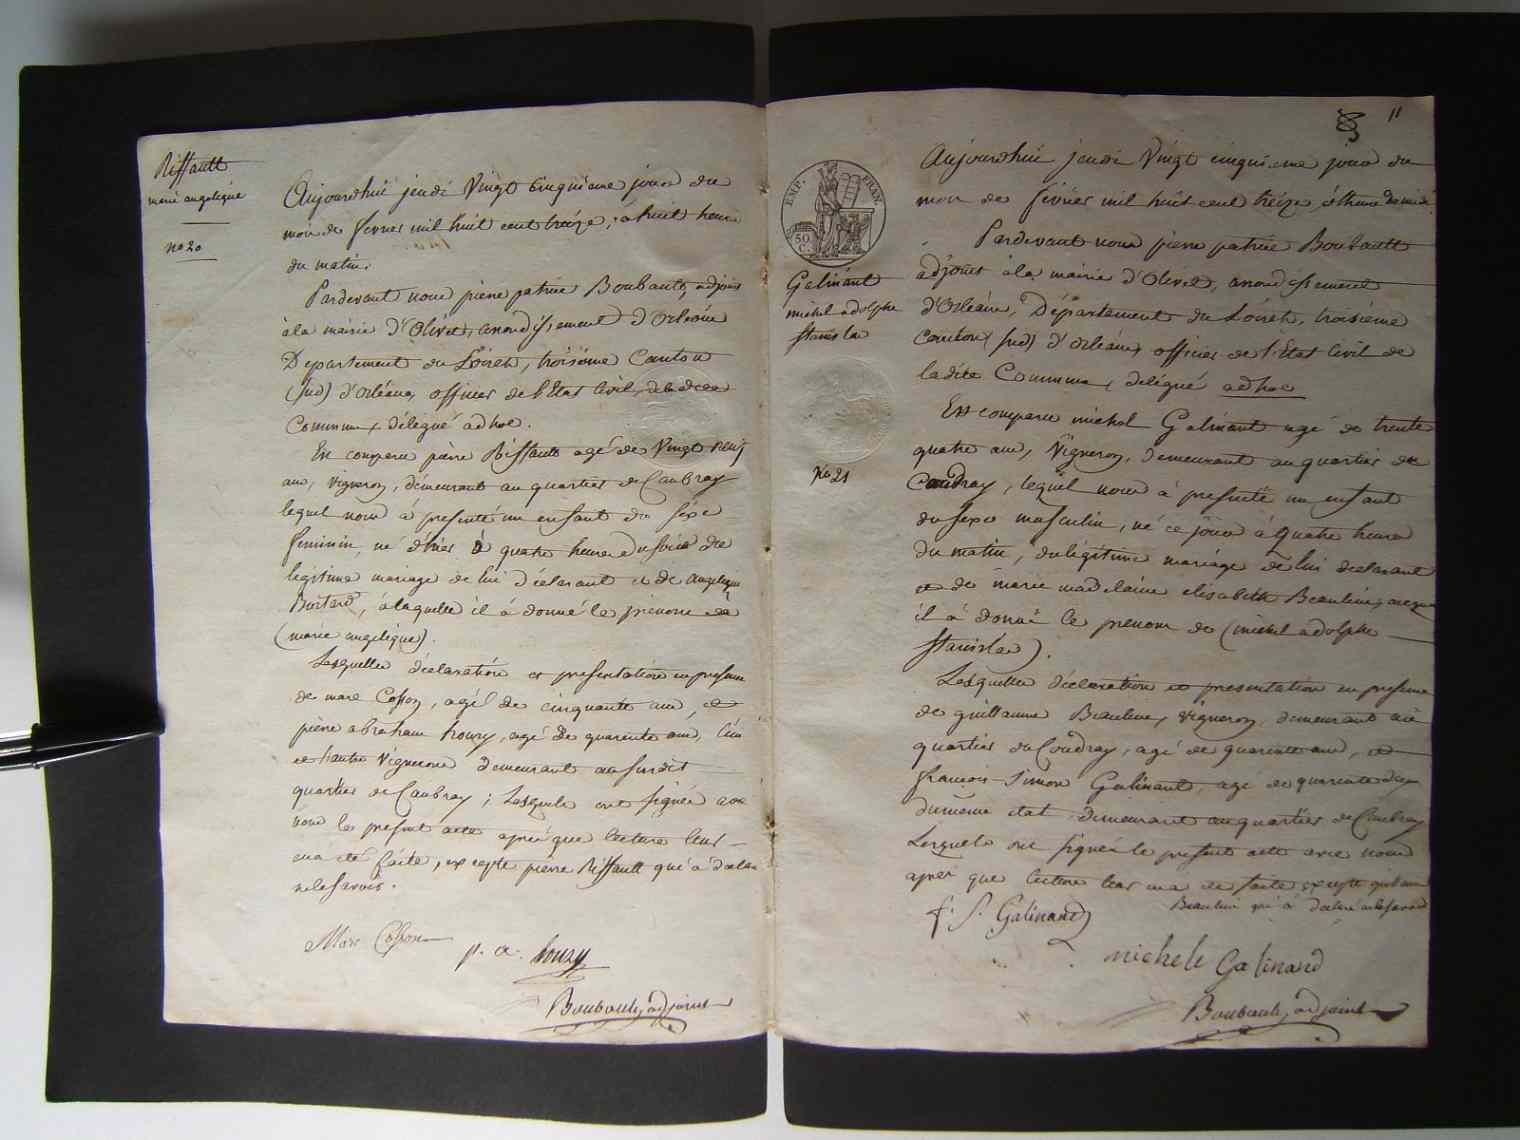 Riffault
marie angelique
no 20
Aujourdhui jeudi Vingt Cinquieme jour du
mois de fevrier mil huit cent treize, à huit heure
du matin.
Pardevant nous pierre patrice Boubault, adjoint
à la mairie d'Olivet, arrondissement d'Orleans
Département du Loiret, troisième Canton
(sud) d'Orléans, officier de l'Etat Civil, de la dite
Commune, délégué adhoc.
Est comparu pierre Riffault agé de Vingt neuf
ans, vigneron, demeurant au quartier de Caubray
lequel nous a presenté un enfant du sexe
feminin, né d'hier à quatre heure du soir de
légitime mariage de lui déclarant et de angelique
, à laquelle il à donné le prénom de
(marie angelique).
Lesquelles déclaration et presentation en presence
de marc Cosson, agé de cinquante ans, et
pierre abraham houzy, agé de quarente ans, l'un
et l'autre Vignerons demeurant au susdit
quartier de Caubray; Lesquels ont signée avec
nous le present acte après que lecture leur
en a été faite, excepte pierre Riffault qui à déclaré
ne le savoir.
Marc Cosson
p. a. houzy
Boubault, adjoint
11
EMP. FRAN.
50 C.
Galinant
michel adolphe
stanislas
No 21
Aujourdhui jeudi Vingt cinquieme jour du
mois de fevrier mil huit cent treize, à l'heure de midi
Pardevant nous pierre patrice Boubault
adjoint à la mairie d'Olivet, arrondissement
d'Orléans, Département du Loiret, troisième
Canton (sud) d'Orléans, officier de l'Etat Civil de
ladite Commune, delégué adhoc
Est comparu michel Galinant agé de trente
quatre ans, Vigneron, demeurant au quartier du
Coudray, lequel nous à presenté un enfant
du sexe masculin, né ce jour à quatre heure
du matin, du légitime mariage de lui declarant
et de marie madelaine elisabeth Beaulieu, auquel
il à donné le prenom de (michel adolphe
stanislas).
Lesquelles déclaration et presentation en presence
de guillaume Beaulieu, Vigneron, demeurant au
quartier du Coudray, agé de quarente ans, et
francois Simon Galinant, agé de quarente deux
du même état demeurant au quartier de Caubray
Lesquels ont signé le present acte avec nous
apres que lecture leur en a été faite excepté guillaume
Beaulieu qui à déclaré ne le savoir
f. S. Galinand
michele Galinand
Boubault, adjoint